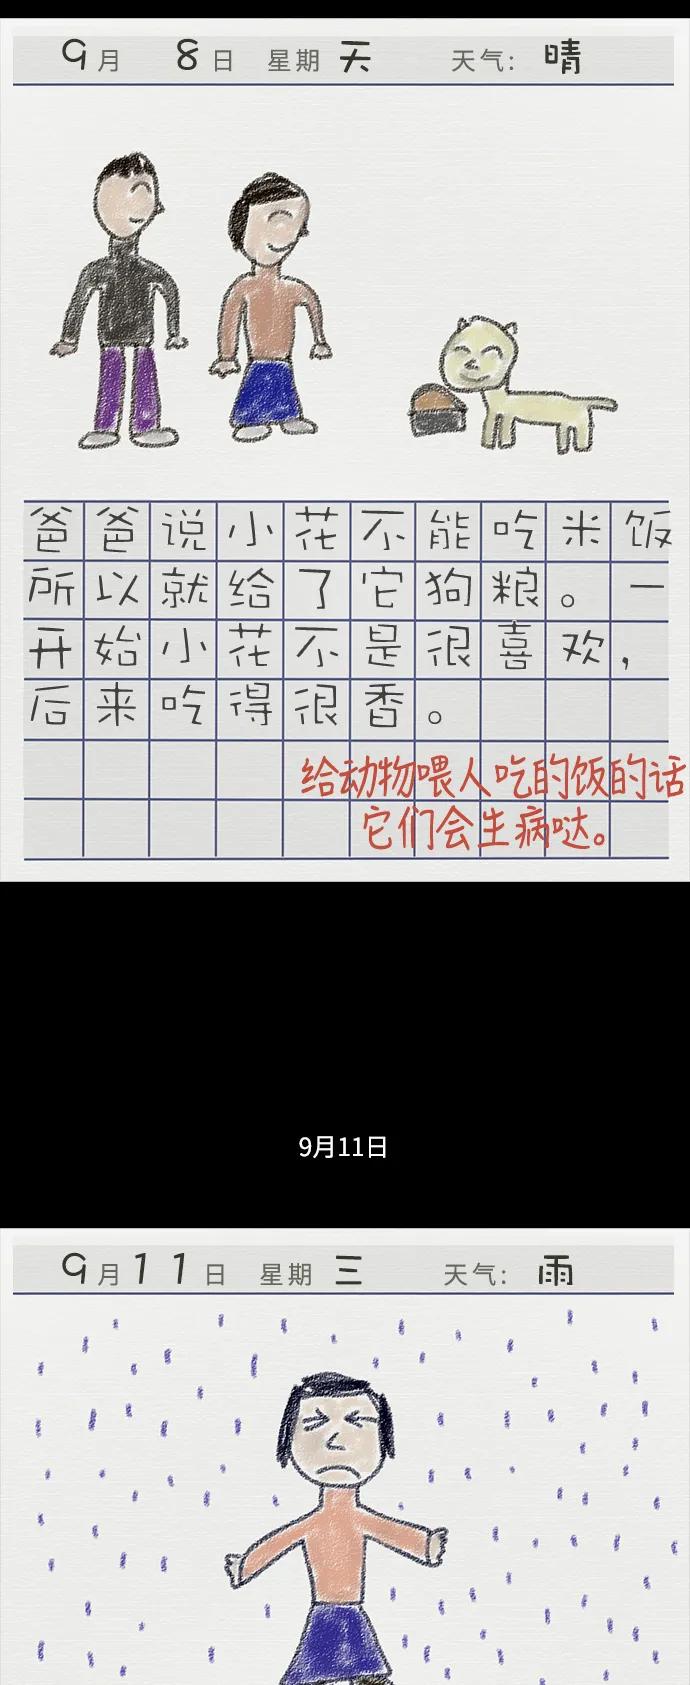 9月 8日 星期 天 天气: 晴
爸爸说小花不能吃米饭
所以就给了它狗粮。一
开始小花不是很喜欢，
后来吃得很香。
给动物喂人吃的饭的话
它们会生病哒。
9月11日
9月11日 星期 三 天气: 雨